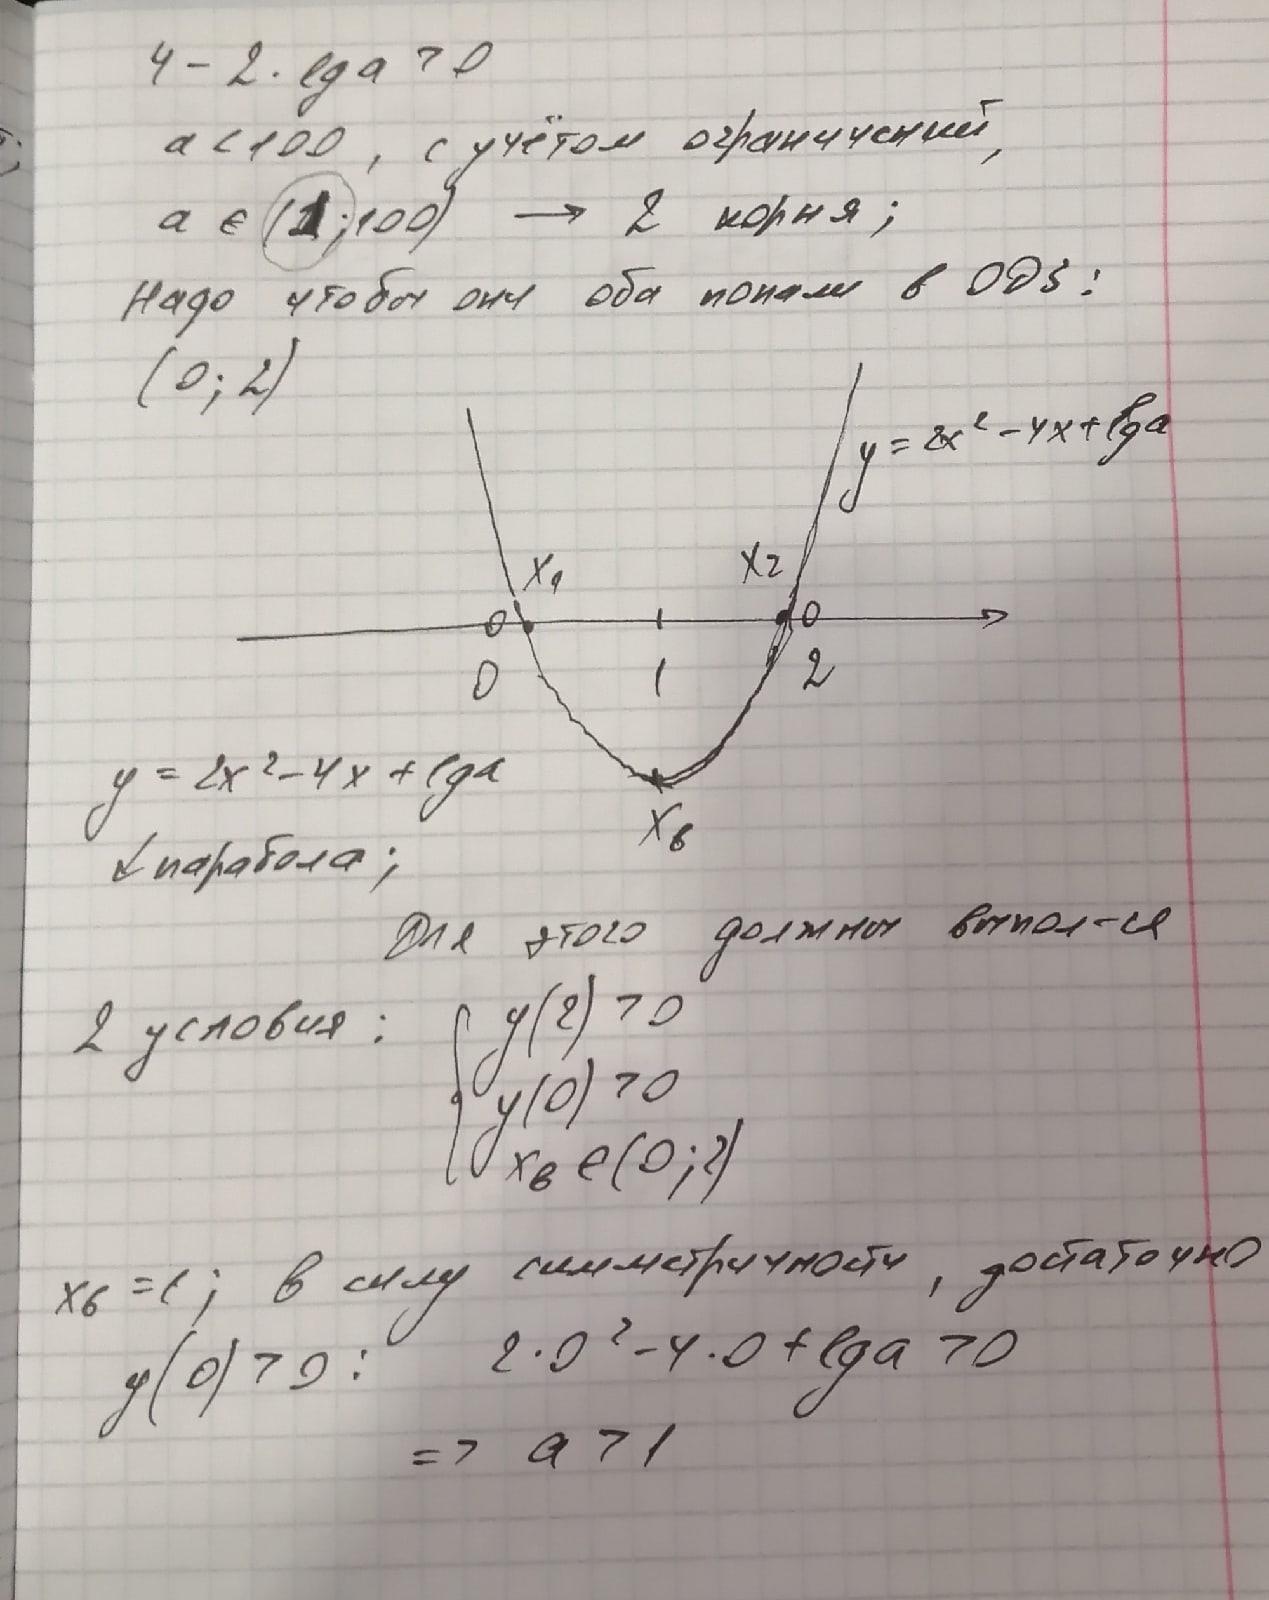 4 - 2 · lg a > 0
a < 100, с учётом ограничений,
a ∈ (1; 100) → 2 корня;
Надо чтобы они оба попали в ОДЗ:
(0; 2)
y = 2x² - 4x + lg a
x₁ x₂
0 1 2
xв
y = 2x² - 4x + lg a
парабола;
Для этого должны выпол-ся
2 условия: { y(2) > 0
y(0) > 0
xв ∈ (0; 2)
xв = 1; в силу симметричности, достаточно
y(0) > 0: 2·0² - 4·0 + lg a > 0
=> a > 1